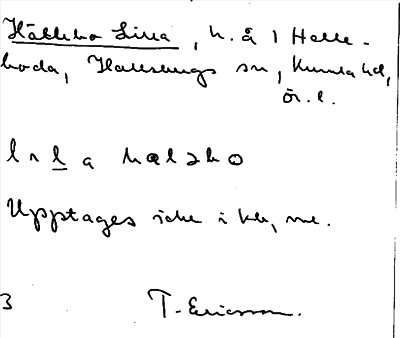 Hällebo Lilla, h. å 1 Halle-
boda, Hallsbergs sn, Kumla hd,
ör. l.
l n l a h æ l ɔ b o
Upptages icke i kb,
3 T. Ericsson.